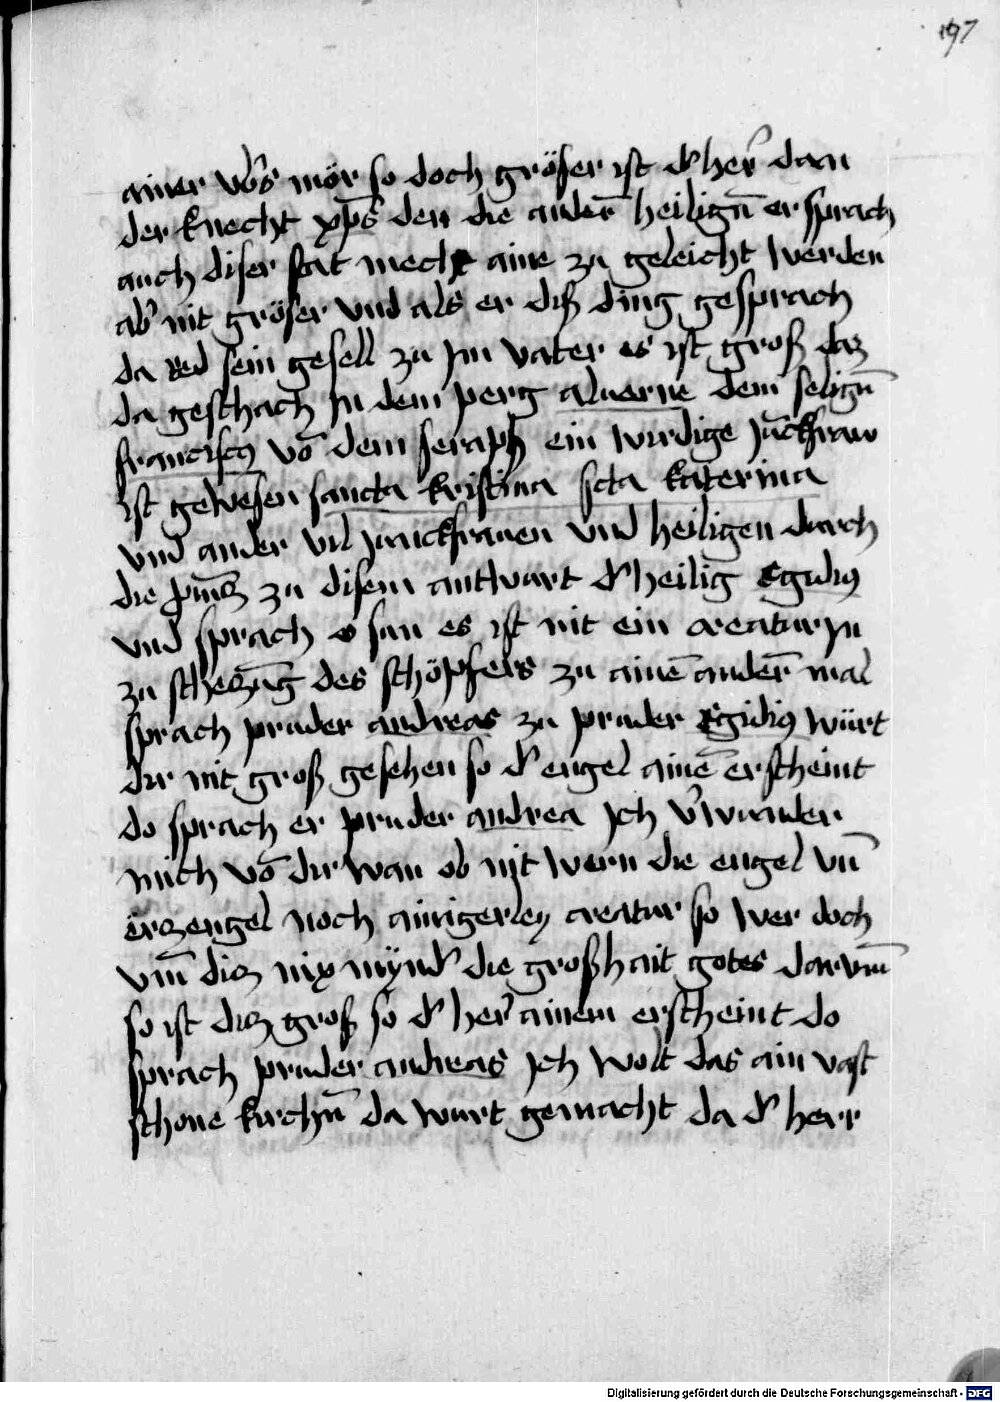 197
ainer vo͛s mör so doch gröser ist d͛ her̄ dan
der knecht xp̄s den die ander̄ heilign̄ er sprach
auch diser stat mecht aine zu geleicht werden
ab͛ nit gröser vnd als er diß ding gesprach
da red sein gesell zu Jm vater es ist groß daz
da geschach Jn dem perg aluerne dem selign̄
franciscꝫ vō dem seraph ein wirdige Jūckfraw
ist gewesen sancta kristina scta katerina
vnd ander vil junckfrauen vnd heiligen durch
die zu disem antwart d͛ heilig Egidiꝰ
vnd sprach o sun es ist nit ein creatur zu
zu schetzūg des schöpfers zu ainē ander̄ mal
sprach pruder andreas zu pruder Egidiꝰ würt
dir nit groß gesehen so d͛ engel ainē erscheint
do sprach er pruder andrea Jch v͛wunder
mich vō dir wan ob nit wern die engel vn̄
erzengel noch ainigerley creatur so wer doch
vm̄ diz nix mynd͛ die großhait gotes darvm̄
so ist diz groß so d͛ her̄ ainem erscheint do
sprach pruder andreas Jch wolt das ain vast
schone kirchn̄ da wurt gemacht da d͛ herr
Digitalisierung gefördert durch die Deutsche Forschungsgemeinschaft - DFG